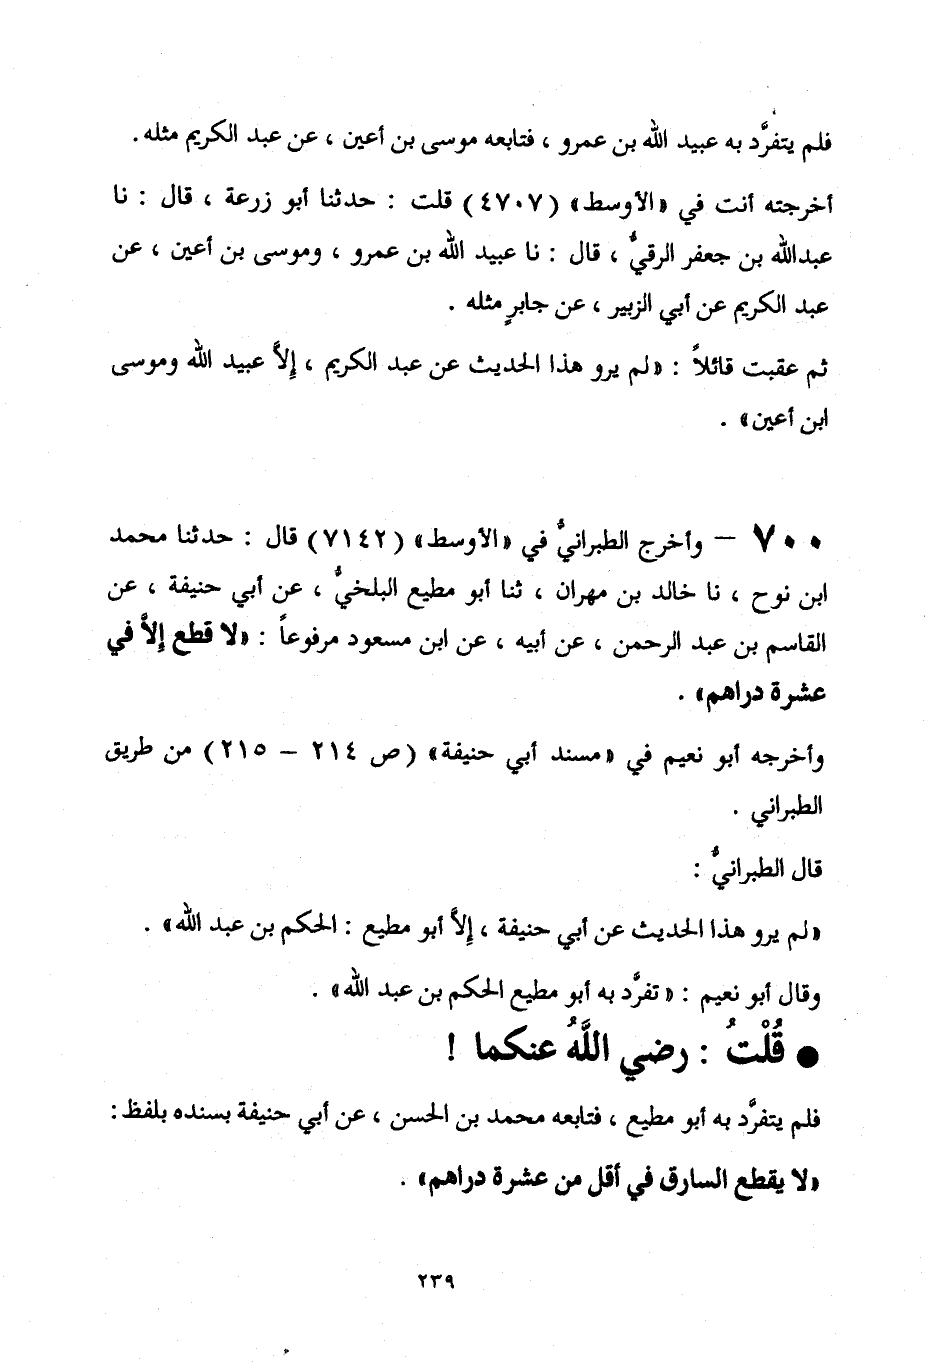 فلم يتفرَّد به عبيد الله بن عمرو ، فتابعه موسى بن أعين ، عن عبد الكريم مثله .
أخرجته أنت في «الأوسط» (٤٧٠٧) قلت : حدثنا أبو زرعة ، قال : نا
عبدالله بن جعفر الرقيُّ ، قال : نا عبيد الله بن عمرو ، وموسى بن أعين ، عن
عبد الكريم عن أبي الزبير ، عن جابرٍ مثله .
ثم عقبت قائلاً : «لم يرو هذا الحديث عن عبد الكريم ، إلاَّ عبيد الله وموسى
ابن أعين» .
٧٠٠ – وأخرج الطبرانيُّ في «الأوسط» (٧١٤٢) قال : حدثنا محمد
ابن نوح ، نا خالد بن مهران ، ثنا أبو مطيع البلخيُّ ، عن أبي حنيفة ، عن
القاسم بن عبد الرحمن ، عن أبيه ، عن ابن مسعود مرفوعاً : «لا قطع إلاَّ في
عشرة دراهم» .
وأخرجه أبو نعيم في «مسند أبي حنيفة» (ص ٢١٤ – ٢١٥) من طريق
الطبراني .
قال الطبرانيُّ :
«لم يرو هذا الحديث عن أبي حنيفة ، إلاَّ أبو مطيع : الحكم بن عبد الله» .
وقال أبو نعيم : «تفرَّد به أبو مطيع الحكم بن عبد الله» .
● قُلْتُ : رضي اللَّهُ عنكما !
فلم يتفرَّد به أبو مطيع ، فتابعه محمد بن الحسن ، عن أبي حنيفة بسنده بلفظ :
«لا يقطع السارق في أقل من عشرة دراهم» .
٢٣٩